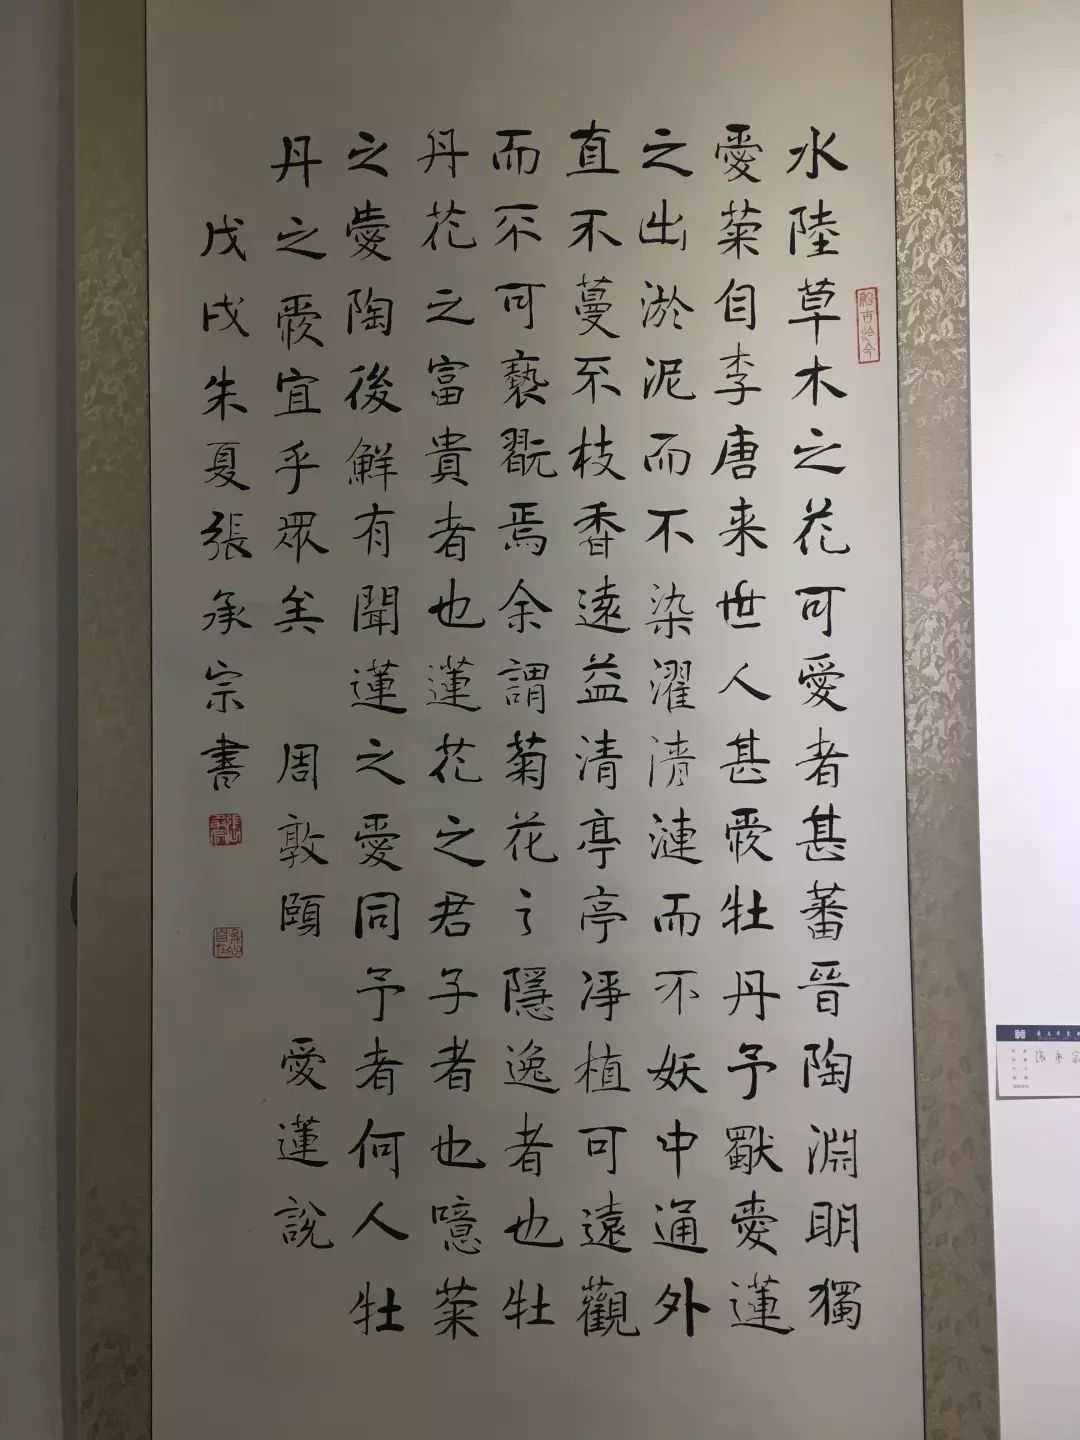 水陸草木之花可愛者甚蕃晋陶淵明獨
愛菊自李唐来世人甚愛牡丹予獨愛蓮
之出淤泥而不染濯清漣而不妖中通外
直不蔓不枝香遠益清亭亭淨植可遠觀
而不可褻翫焉余謂菊花之隱逸者也牡
丹花之富貴者也蓮花之君子者也噫菊
之愛陶後鮮有聞蓮之愛同予者何人牡
丹之愛宜乎眾矣 周敦頤 愛蓮說
戊戌朱夏張承宗書